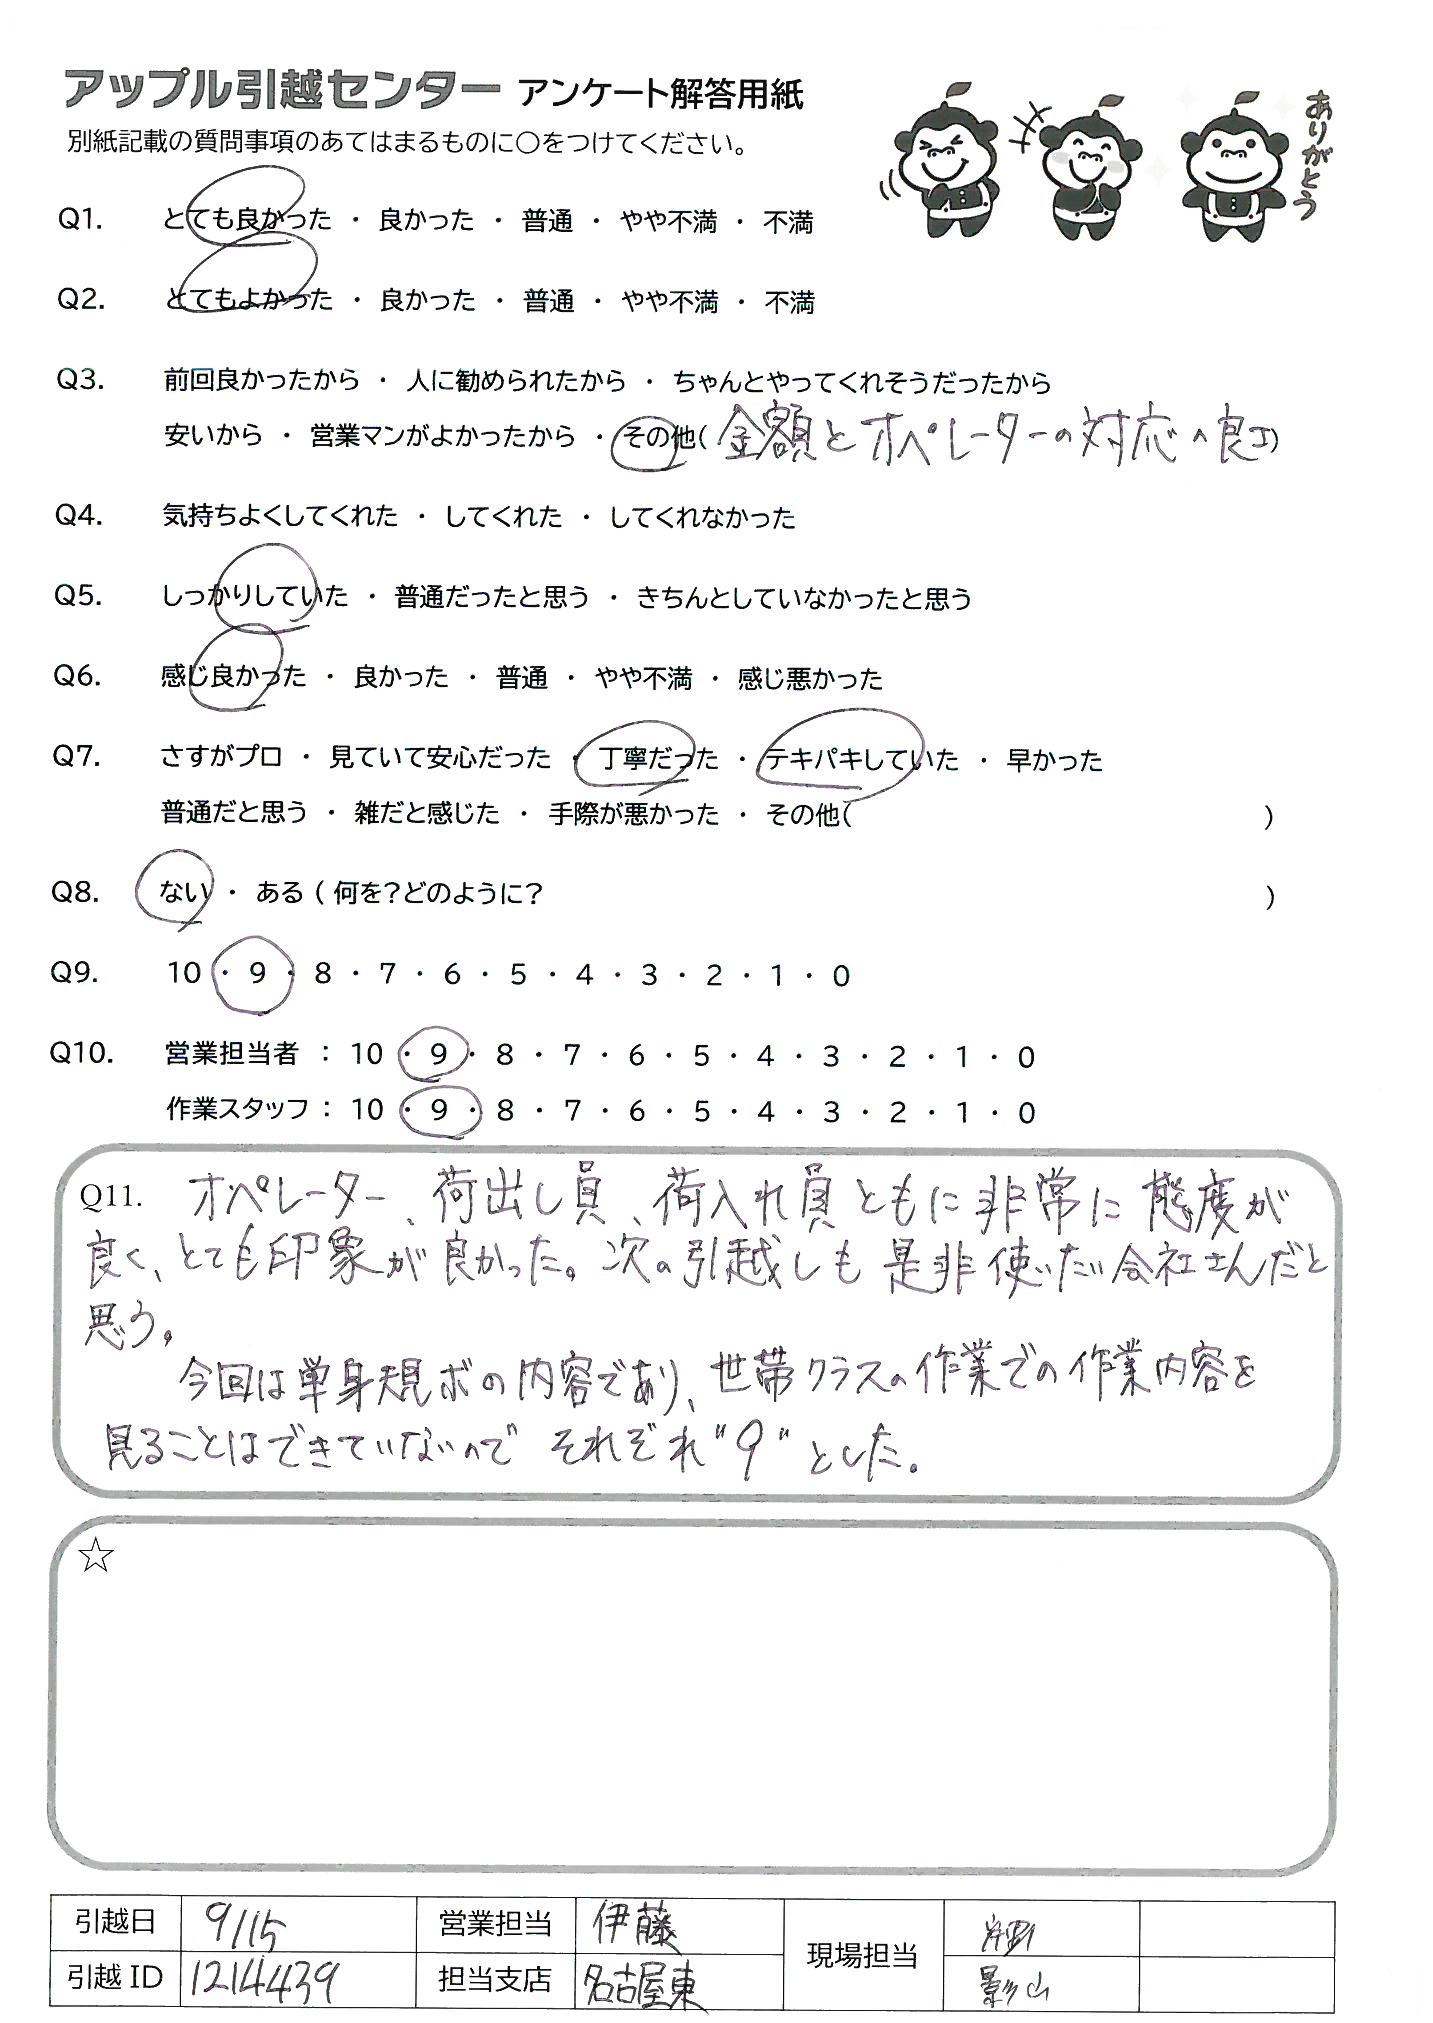 アップル引越センター アンケート解答用紙
別紙記載の質問事項のあてはまるものに〇をつけてください。
ありがとう
Q1. とても良かった ・ 良かった ・ 普通 ・ やや不満 ・ 不満
Q2. とてもよかった ・ 良かった ・ 普通 ・ やや不満 ・ 不満
Q3. 前回良かったから ・ 人に勧められたから ・ ちゃんとやってくれそうだったから
安いから ・ 営業マンがよかったから ・ その他( 金額とオペレーターの対応の良さ)
Q4. 気持ちよくしてくれた ・ してくれた ・ してくれなかった
Q5. しっかりしていた ・ 普通だったと思う ・ きちんとしていなかったと思う
Q6. 感じ良かった ・ 良かった ・ 普通 ・ やや不満 ・ 感じ悪かった
Q7. さすがプロ ・ 見ていて安心だった ・ 丁寧だった ・ テキパキしていた ・ 早かった
普通だと思う ・ 雑だと感じた ・ 手際が悪かった ・ その他( )
Q8. ない ・ ある ( 何を?どのように? )
Q9. 10 ・ 9 ・ 8 ・ 7 ・ 6 ・ 5 ・ 4 ・ 3 ・ 2 ・ 1 ・ 0
Q10. 営業担当者 : 10 ・ 9 ・ 8 ・ 7 ・ 6 ・ 5 ・ 4 ・ 3 ・ 2 ・ 1 ・ 0
作業スタッフ : 10 ・ 9 ・ 8 ・ 7 ・ 6 ・ 5 ・ 4 ・ 3 ・ 2 ・ 1 ・ 0
Q11. オペレーター、荷出し員、荷入れ員ともに非常に態度が
良く、とても印象が良かった。次の引越しも是非使いたい会社さんだと
思う。
今回は単身規ボの内容であり、世帯クラスの作業での作業内容を
見ることはできていないので それぞれ"9"とした。
☆
引越日 9/15 営業担当 伊藤 現場担当
引越 ID 1214439 担当支店 名古屋東 影山